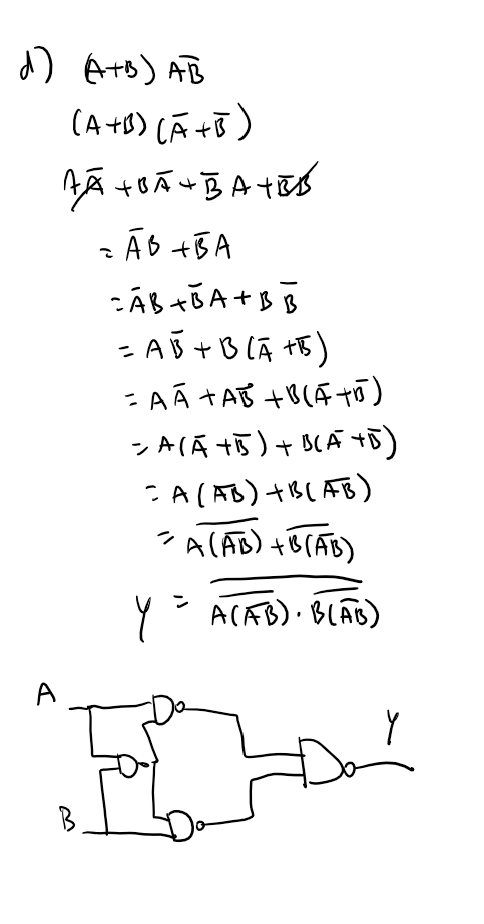 d) (A+B) A̅B̅
(A+B) (A̅+B̅)
AA̅ + BA̅ + B̅A + B̅B
= A̅B + B̅A
= A̅B + B̅A + BB̅
= AB̅ + B(A̅+B̅)
= AA̅ + AB̅ + B(A̅+B̅)
= A(A̅+B̅) + B(A̅+B̅)
= A(A̅B̅) + B(A̅B̅)
= \overline{A(\overline{AB})} + \overline{B(\overline{AB})}
Y = \overline{\overline{A(\overline{AB})} · \overline{B(\overline{AB})}}
A
Y
B